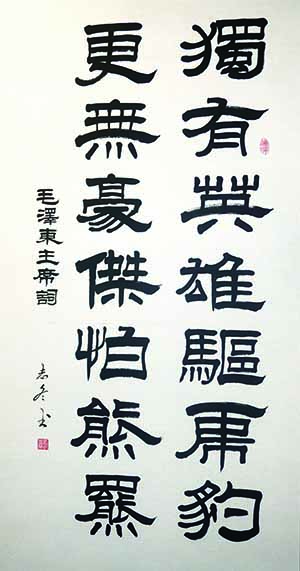 獨有英雄驅虎豹
更無豪傑怕熊羆
毛澤東主席詞